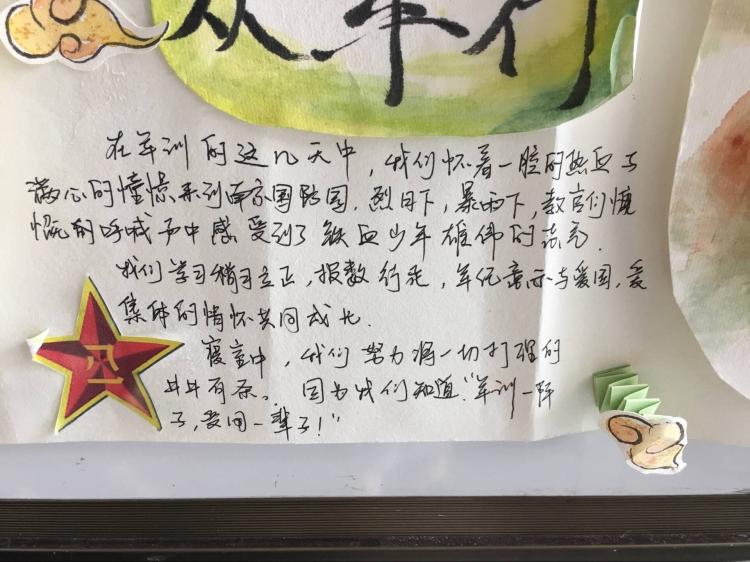 从军行
在军训的这几天中，我们怀着一腔的热血与
满心的憧憬来到南京国防园．烈日下，暴雨下，教官们慷
慨的呼喊声中感受到了铁血少年雄伟的
我们学习稍习立正，报数行走，军纪意示与爱国，爱
集体的情怀共同成长．
寝室中，我们努力将一切打理的
井井有条。因为我们知道："军训一阵
子，爱国一辈子！"
八一